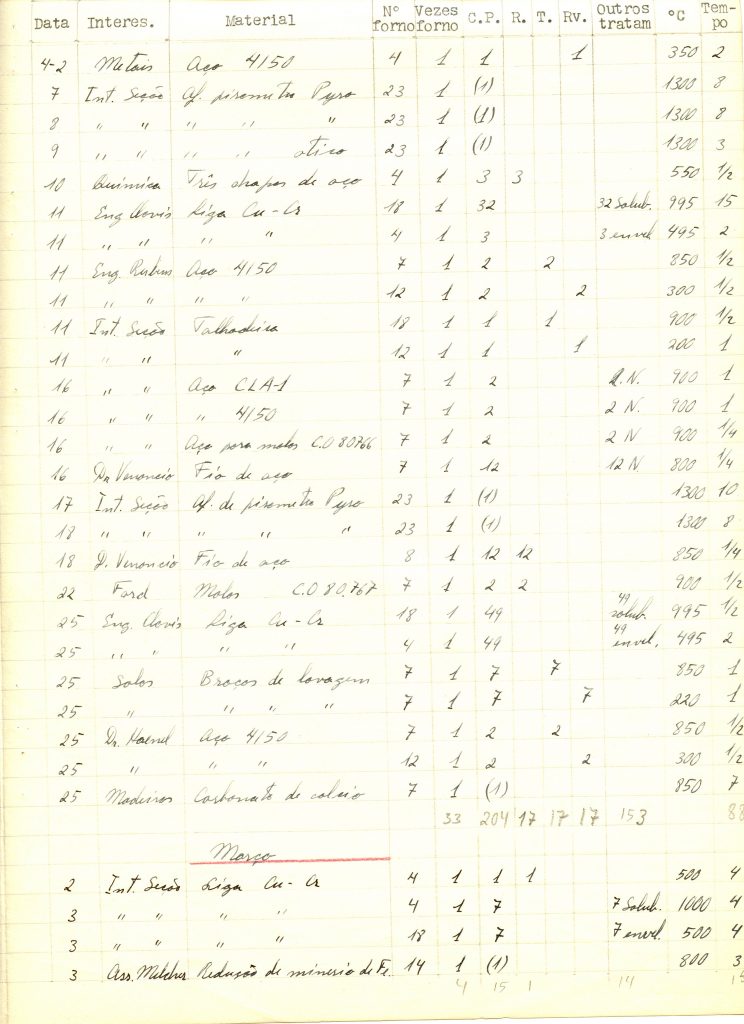 Data Interes. Material Nº forno Vezes forno C.P. R. T. Rv. Outros tratam °C Tempo
4-2 Metais Aço 4150 4 1 1 1 350 2
7 Int. Seção Af. pirometro Pyro 23 1 (1) 1300 8
8 " " " " " 23 1 (1) 1300 8
9 " " " " otico 23 1 (1) 1300 3
10 Quimica Três chapas de aço 4 1 3 3 550 1/2
11 Eng Clovis Liga Cu-Cr 18 1 32 32 Solub. 995 15
11 " " " " 4 1 3 3 envel 495 2
11 Eng. Rubens Aço 4150 7 1 2 2 850 1/2
11 " " " " 12 1 2 2 300 1/2
11 Int. Seção Talhadeira 18 1 1 1 900 1/2
11 " " " 12 1 1 1 200 1
16 " " Aço CLA-1 7 1 2 2.N. 900 1
16 " " " 4150 7 1 2 2 N. 900 1
16 " " Aço para molas C.O 80766 7 1 2 2 N 900 1/4
16 Dr. Venancio Fio de aço 7 1 12 12 N 800 1/4
17 Int. Seção Af. de pirometro Pyro 23 1 (1) 1300 10
18 " " " " " 23 1 (1) 1300 8
18 D. Venancio Fio de aço 8 1 12 12 850 1/4
22 Ford Molas C.O 80.767 7 1 2 2 900 1/2
25 Eng. Clovis Liga Cu-Cr 18 1 49 49 solub. 995 1/2
25 " " " " 4 1 49 49 envel, 495 2
25 Solos Braços de lavagem 7 1 7 7 850 1
25 " " " " 7 1 7 7 220 1
25 Dr. Haenel Aço 4150 7 1 2 2 850 1/2
25 " " " 12 1 2 2 300 1/2
25 Madeiras Carbonato de calcio 7 1 (1) 850 7
33 204 17 17 17 153 88
Março
2 Int. Seção Liga Cu-Cr 4 1 1 1 500 4
3 " " " " 4 1 7 7 Solub. 1000 4
3 " " " " 18 1 7 7 envel. 500 4
3 Ass. Melcher Redução de minerio de Fe. 14 1 (1) 800 3
4 15 1 14